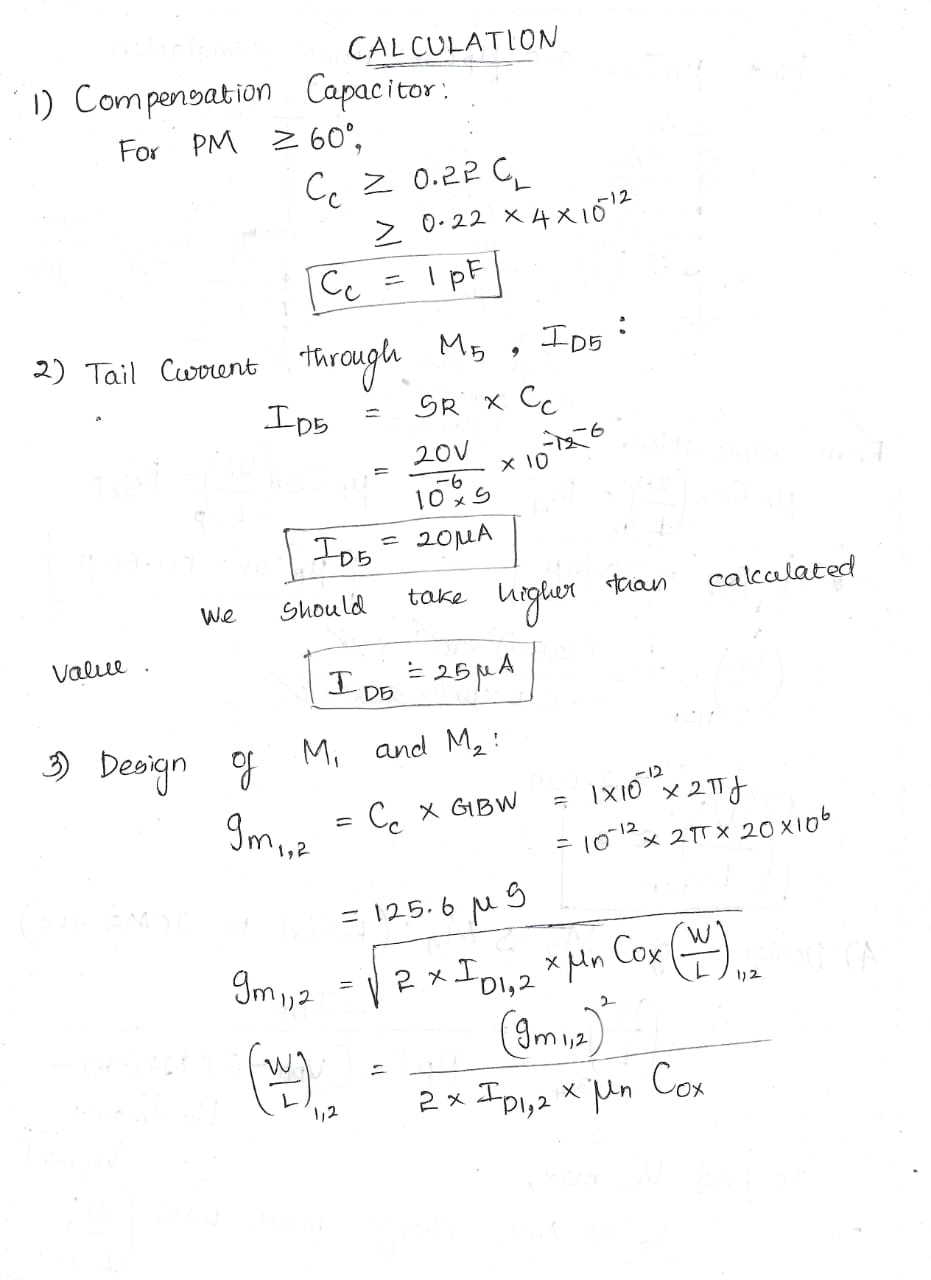 CALCULATION
1) Compensation Capacitor:
For PM ≥ 60°,
C_c ≥ 0.22 C_L
≥ 0.22 × 4 × 10^-12
C_c = 1 pF
2) Tail Current through M_5, I_D5 :
I_D5 = SR × C_c
= 20V / 10^-6 × s × 10^-6
I_D5 = 20μA
We should take higher than calculated
value.
I_D5 = 25μA
3) Design of M_1 and M_2:
g_m1,2 = C_c × GBW = 1×10^-12 × 2πf
= 10^-12 × 2π × 20 × 10^6
= 125.6 μS
g_m1,2 = √(2 × I_D1,2 × μn Cox (W/L)_1,2)
(W/L)_1,2 = (g_m1,2)^2 / 2 × I_D1,2 × μn Cox